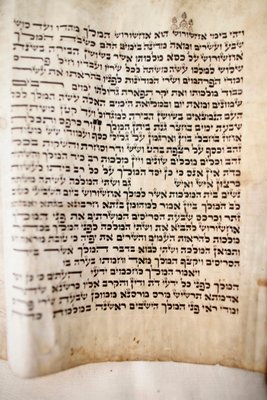 ויהי בימי אחשורוש הוא אחשורוש המלך מהדו ועד כוש
שבע ועשרים ומאה מדינה בימים ההם כשבת המלך
אחשורוש על כסא מלכותו אשר בשושן הבירה בשנת
שלוש למלכו עשה משתה לכל שריו ועבדיו חיל פרס
ומדי הפרתמים ושרי המדינות לפניו בהראתו את עשר
כבוד מלכותו ואת יקר תפארת גדולתו ימים רבים
שמונים ומאת יום ובמלואת הימים האלה עשה המלך לכל
העם הנמצאים בשושן הבירה למגדול ועד קטן משתה
שבעת ימים בחצר גנת ביתן המלך חור כרפס ותכלת אחוז
בחבלי בוץ וארגמן על גלילי כסף ועמודי שש מטות
זהב וכסף על רצפת בהט ושש ודר וסחרת והשקות בכלי
זהב וכלים מכלים שונים ויין מלכות רב כיד המלך והשתיה
כדת אין אנס כי כן יסד המלך על כל רב ביתו לעשות
כרצון איש ואיש גם ושתי המלכה עשתה משתה
נשים בית המלכות אשר למלך אחשורוש ביום השביעי כטוב
לב המלך ביין אמר למהומן בזתא חרבונא בגתא ואבגתא
זתר וכרכס שבעת הסריסים המשרתים את פני המלך
אחשורוש להביא את ושתי המלכה לפני המלך בכתר
מלכות להראות העמים והשרים את יפיה כי טובת מראה היא
ותמאן המלכה ושתי לבוא בדבר המלך אשר ביד
הסריסים ויקצף המלך מאד וחמתו בערה בו
ויאמר המלך לחכמים ידעי העתים כי כן דבר
המלך לפני כל ידעי דת ודין והקרב אליו כרשנא שתר
אדמתא תרשיש מרס מרסנא ממוכן שבעת שרי פרס
ומדי ראי פני המלך הישבים ראשנה במלכות